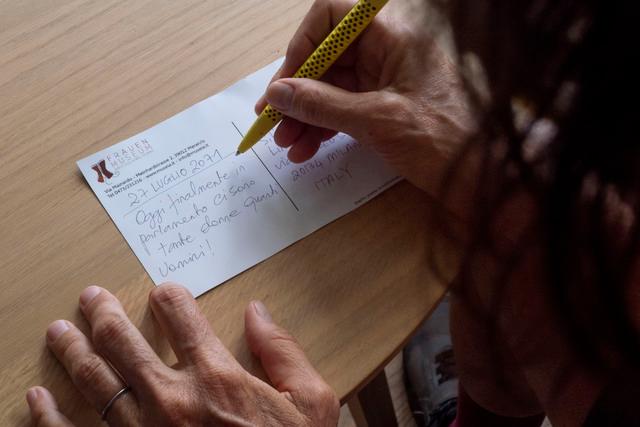 FRAUEN
MUSEUM
Via Mainardo - Meinhardstrasse 2, 39012 Merano
Tel 0473/231216 - www.museia.it - info@museia.it
27 LUGLIO 2071
Oggi finalmente in
parlamento ci sono
tante donne quanti
uomini!
20134 MILANO
ITALY